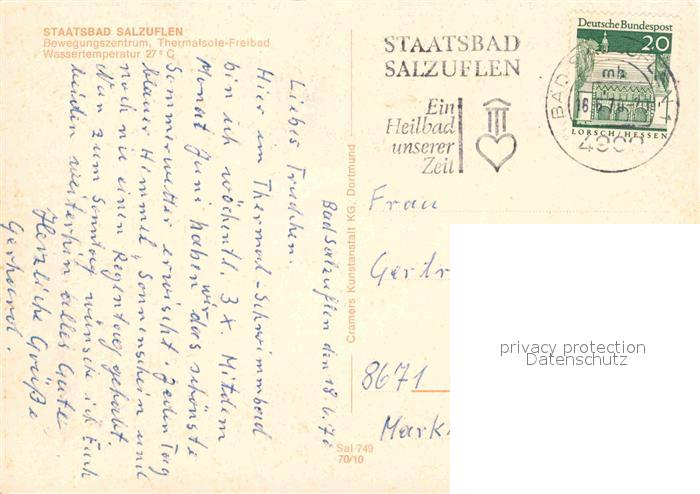 STAATSBAD SALZUFLEN
Bewegungszentrum, Thermalsole-Freibad
Wassertemperatur 27° C
Bad Salzuflen den 18.6.70
Liebes Trudchen.
Hier im Thermal-Schwimmbad
bin ich wöchentl. 3 x. Mit dem
Monat Juni haben wir das schönste
Sommerwetter erwischt. Jeden Tag
blauer Himmel, Sonnenschein und
noch nie einen Regentag gehabt.
Nun zum Sonntag wünsche ich Euch
beiden weiterhin alles Gute
Herzliche Grüße
Gerhard.
Cramers Kunstanstalt KG. Dortmund
Sal 749
70/10
STAATSBAD
SALZUFLEN
Ein
Heilbad
unserer
Zeit
Deutsche Bundespost
20
LORSCH/HESSEN
BAD
mk
4902
Frau
Gertr
8671
Mark
privacy protection
Datenschutz